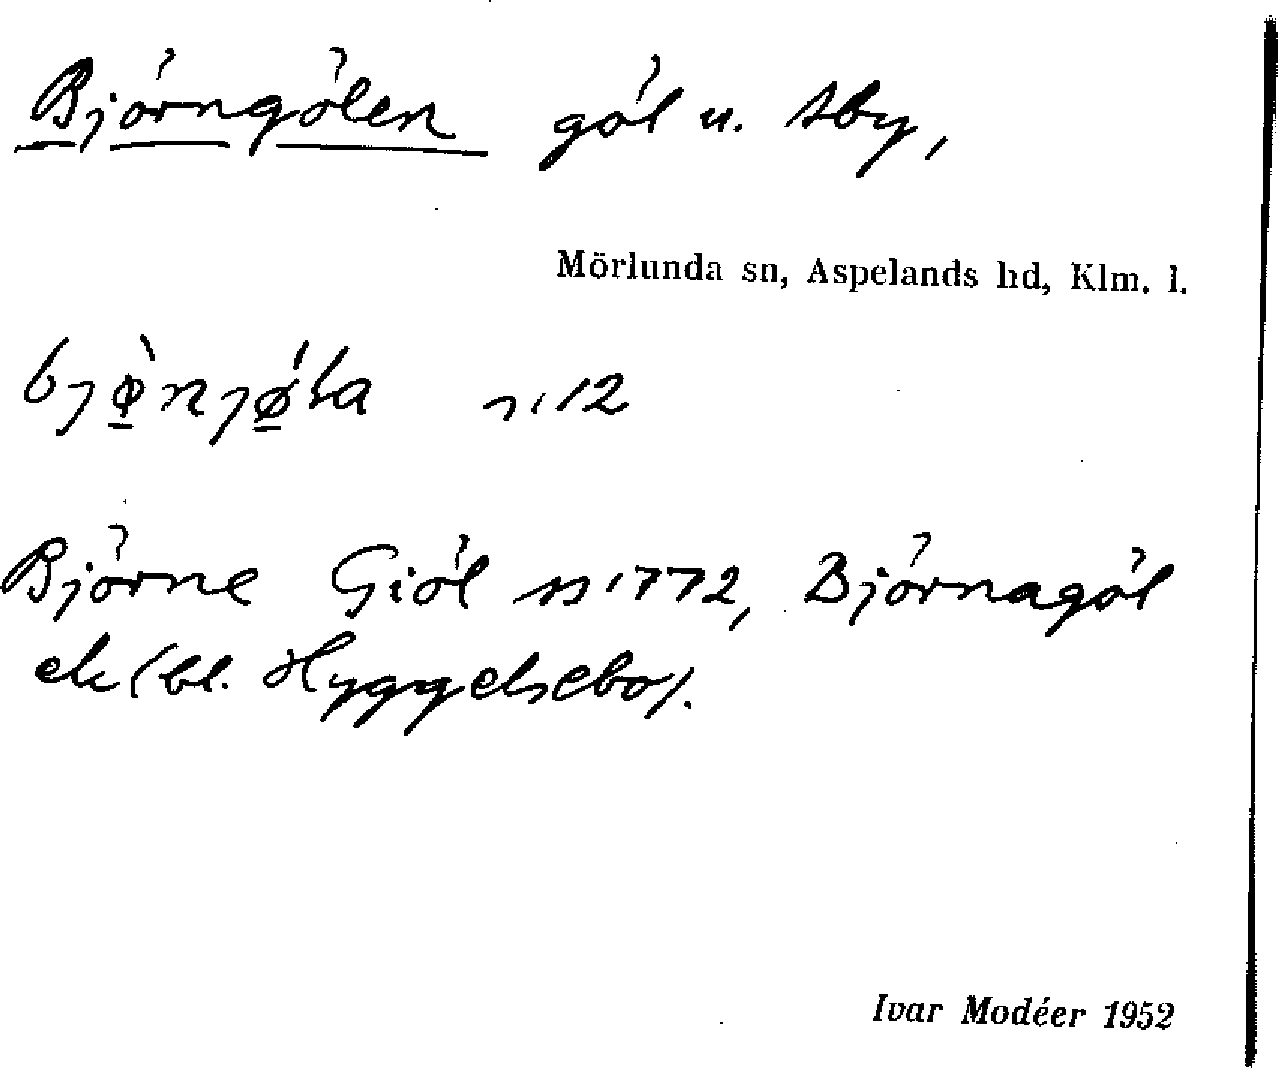 Björngölen göl u. Åby,
Mörlunda sn, Aspelands hd, Klm. l.
Björne Giöl 1772, Björnagöl
ek (bl. Hyggelsebo).
Ivar Modéer 1952